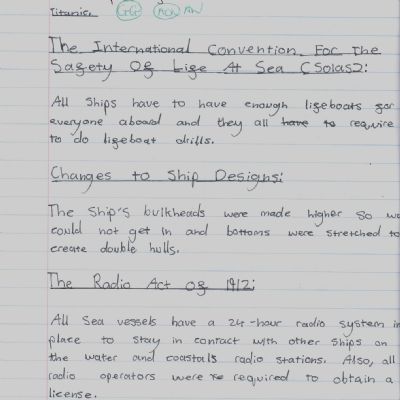 Titanic.
The International Convention For The
Safety Of Life At Sea (Solas):
All Ships have to have enough lifeboats for
everyone aboard and they all have to require
to do lifeboat drills.
Changes to Ship Designs:
The Ship's bulkheads were made higher so
could not get in and bottoms were stretched to
create double hulls.
The Radio Act of 1912:
All Sea vessels have a 24-hour radio system in
place to stay in contact with other ships on
the water and coastals radio stations. Also, all
radio operators were required to obtain a
license.